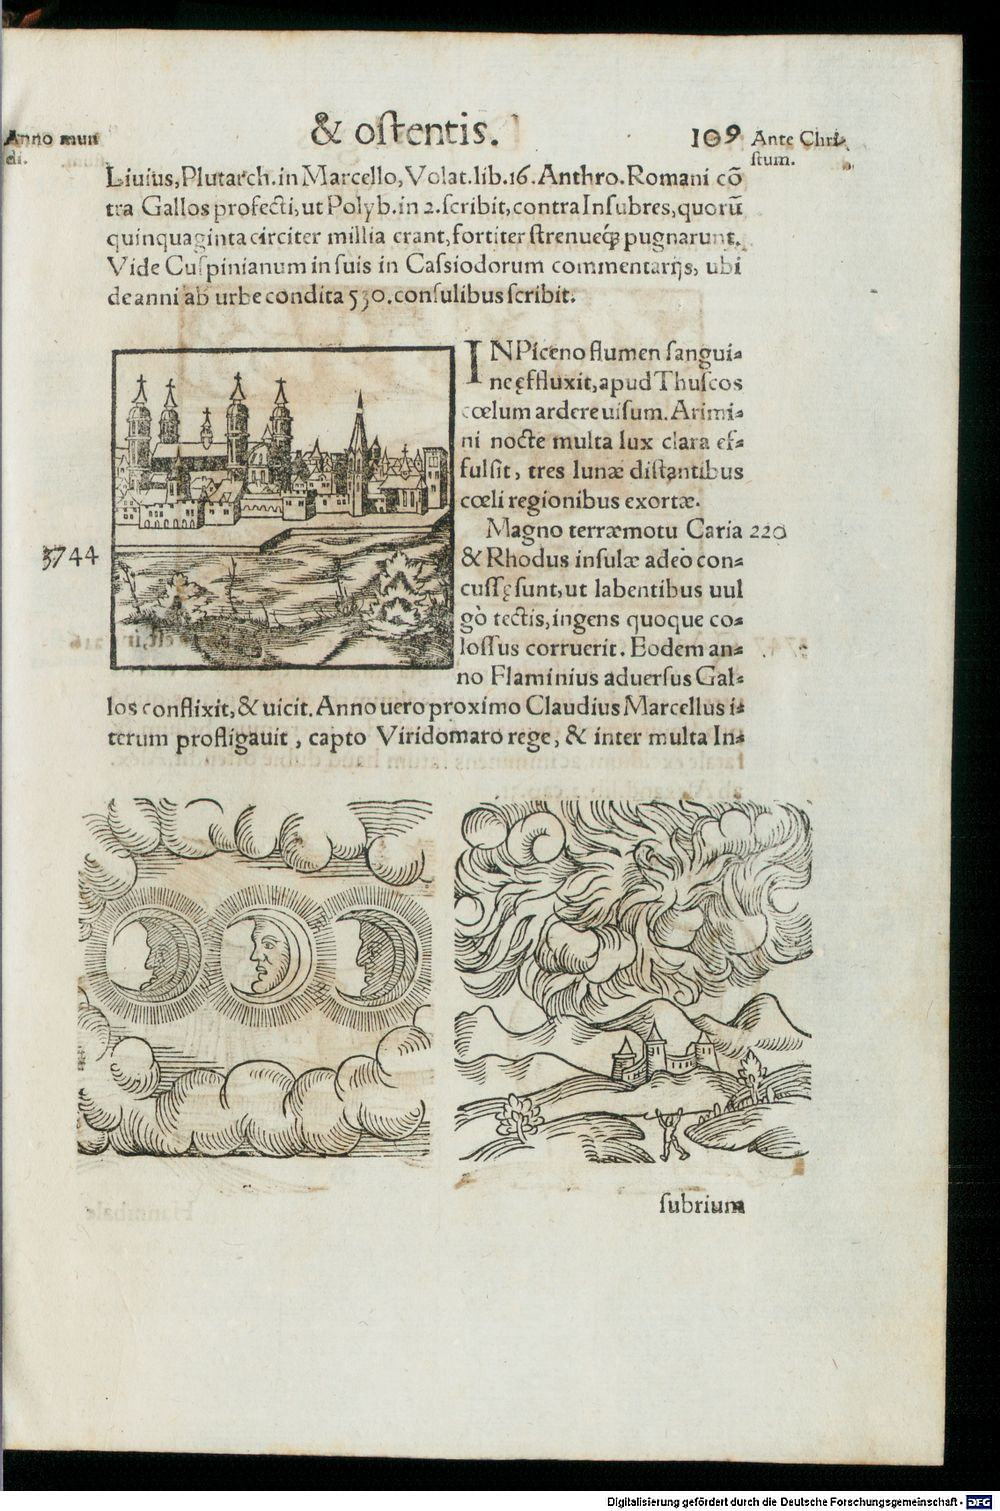 Anno mun
di.
& ostentis.
109
Ante Chri
stum.
Liuius, Plutarch. in Marcello, Volat. lib. 16. Anthro. Romani cō
tra Gallos profecti, ut Polyb. in 2. scribit, contra Insubres, quorū
quinquaginta circiter millia erant, fortiter strenueq́; pugnarunt.
Vide Cuspinianum in suis in Cassiodorum commentarijs, ubi
de anni ab urbe condita 530. consulibus scribit.
IN Piceno flumen sangui=
ne effluxit, apud Thuscos
cœlum ardere uisum. Arimi=
ni nocte multa lux clara ef=
fulsit, tres lunæ distantibus
cœli regionibus exortæ.
Magno terræmotu Caria 220
3744
& Rhodus insulæ adeò con=
cussę sunt, ut labentibus uul
gò tectis, ingens quoque co=
lossus corruerit. Eodem an=
no Flaminius aduersus Gal=
los conflixit, & uicit. Anno uero proximo Claudius Marcellus i=
terum profligauit, capto Viridomaro rege, & inter multa In=
subrium
Digitalisierung gefördert durch die Deutsche Forschungsgemeinschaft - DFG